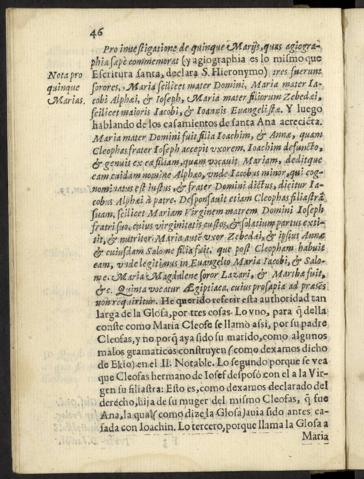 46
Pro inuestigatione de quinque Marijs, quas agiogra-
phia sæpe commemorat (y agiographia es lo mismo que
Nota pro
quinque
Marias.
Escritura santa, declara S. Hieronymo) tres fuerunt
sorores, Maria scilicet mater Domini, Maria mater Ia-
cobi Alphæi, & Ioseph, Maria mater filiorum Zebedæi,
scilicet maioris Iacobi, & Ioannis Euangelistæ. Y luego
hablando de los casamientos de santa Ana acrecieta.
Maria mater Domini fuit filia Ioachim, & Annæ, quam
Cleophas frater Ioseph accepit vxorem, Ioachim defuncto,
& genuit ex ea filiam, quam vocauit Mariam, deditque
eam cuidam nomine Alphæo, vnde Iacobus minor, qui cog-
nominatus est iustus, & frater Domini dictus, dicitur Ia-
cobus Alphæi à patre. Desponsauit etiam Cleophas filiastrã
suam, scilicet Mariam Virginem matrem Domini Ioseph
fratri suo, eius virginitatis custos, & solatium partus exti-
tit, & nutritor. Maria autẽ vxor Zebedæi, & ipsius Annæ
& cuiusdam Salome filia fuit, que post Cleopham habuit
eam, vnde legimus in Euangelio Maria Iacobi, & Salo-
me. Maria Magdalene soror Lazari, & Martha fuit,
&c. Quinta vocatur Ægiptiaca, cuius prosapia ad præsẽs
non requiritur. He querido referir esta authoridad tan
larga de la Glosa, por tres cosas. Lo vno, para q̃ della
conste como Maria Cleofe se llamò assi, por su padre
Cleofas, y no porq̃ aya sido su marido, como algunos
malos gramaticos construyen (como dexamos dicho
de Ekio) en el II. Notable. Lo segundo porque se vea
que Cleofas hermano de Iosef desposò con el a la Vir-
gen su filiastra: Esto es, como dexamos declarado del
derecho, hija de su muger del mismo Cleofas, q̃ fue
Ana, la qual (como dize la Glosa) auia sido antes ca-
sada con Ioachin. Lo tercero, porque llama la Glosa a
Maria